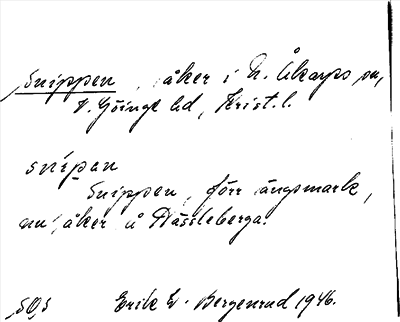 Snippen, åker i N. Åkarps sn,
V. Göinge hd, Krist. l.
snipan
Snippen, förr ängsmark,
nu åker å Hässleberga.
SOS Erik E. Bergenrud 1946.